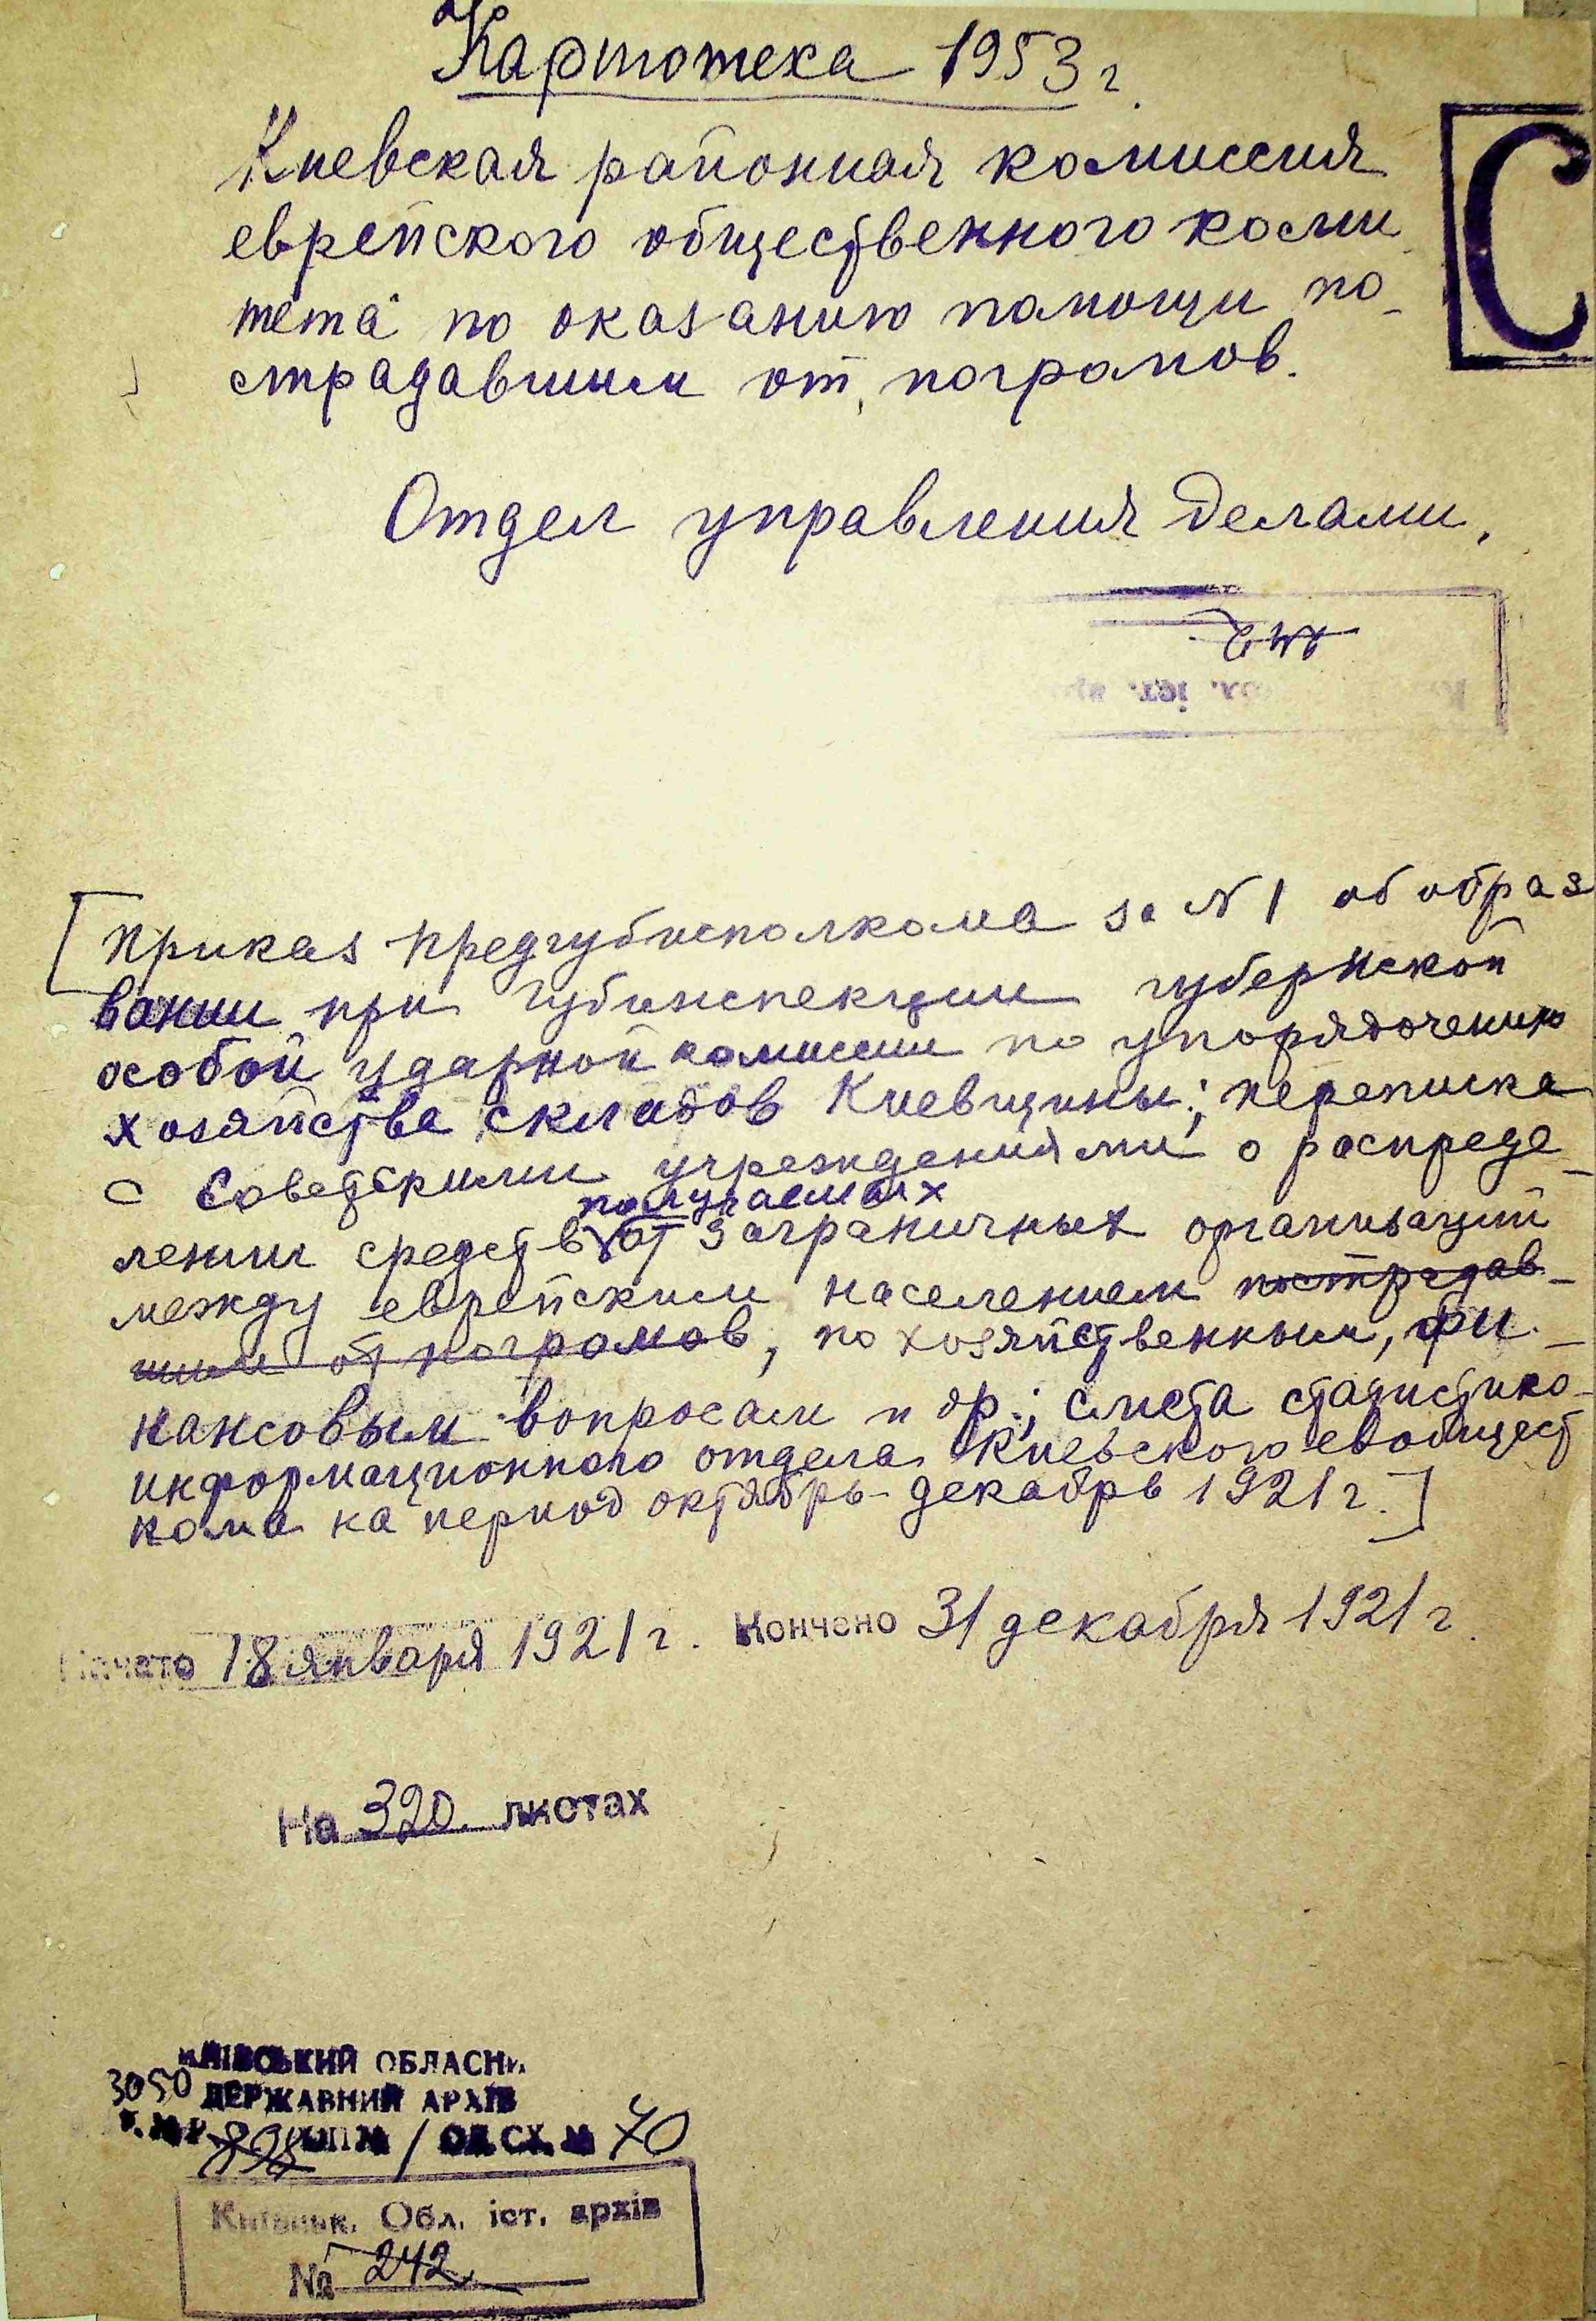 Картотека 1953 г.
С
Киевская районная комиссия
еврейского общественного коми
тета по оказанию помощи по-
страдавшим от погромов.
Отдел управления делами.
іст.
[Приказ предгубисполкома за N 1 об образ
вании при Губинспекции губернской
особой ударной комиссии по упорядочению
хозяйства складов Киевщины; переписка
с советскими учреждениями о распреде-
получаемых
лении средств от заграничных организаций
между еврейским населением пострадав-
шим от погромов, по хозяйственным, фи-
нансовым вопросам и др.; смета статистико-
информационного отдела Киевского евобщест
кома на период октябрь-декабрь 1921 г.]
Начато 18 января 1921 г. Кончено 31 декабря 1921 г.
На 320 листах
КИЇВСЬКИЙ ОБЛАСН
3050 ДЕРЖАВНИЙ АРХІВ
/ ОД. СХ. № 70
Київськ. Обл. іст. архів
№ 242